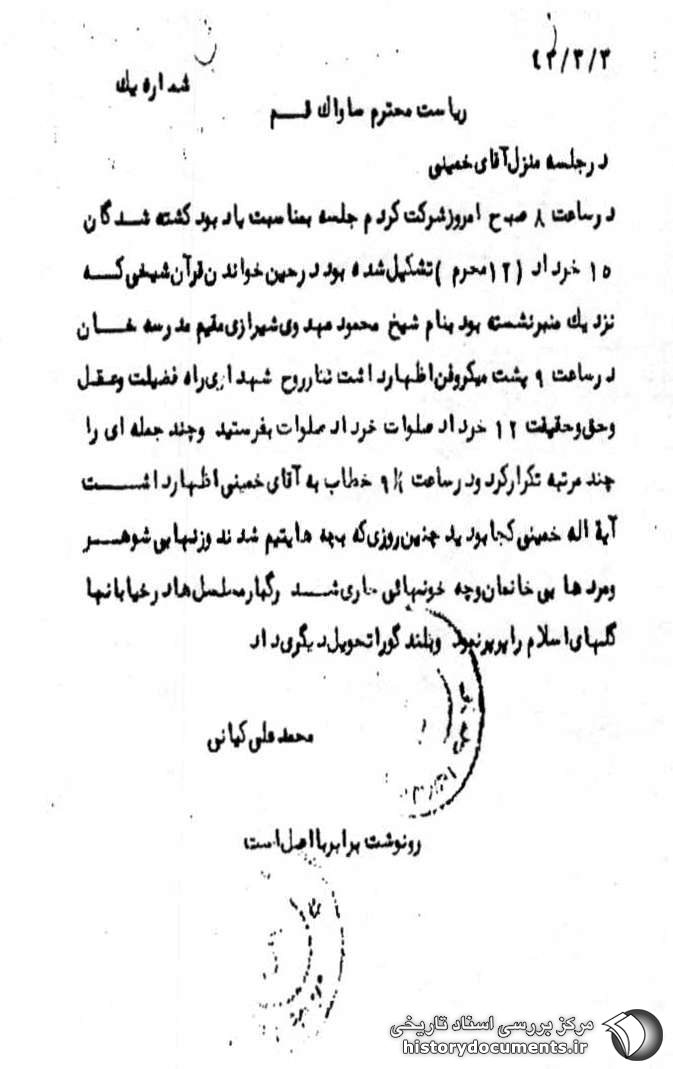 ۴۳/۳/۳
شماره یك
ریاست محترم ساواك قــم
درجلسه منزل آقای خمینی
درساعت ۸ صبح امروزشرکت کردم جلسه بمناسبت یاد بود کشته شـدگان
۱۵ خرداد (۱۲محرم )تشکیل شده بود درحین خواندن قرآن شیخی کـه
نزدیك منبرنشسته بود بنام شیخ محمود مهدوی شیرازی مقیم مدرسه خـان
درساعت ۹ پشت میکروفن اظهارداشت نثارروح شهدای راه فضیلت وعـقل
وحق وحقیقت ۱۲ خرداد صلوات خرداد صلوات بفرستید وچند جمله ای را
چند مرتبه تکرارکرد ودرساعت ۹ خطاب به آقای خمینی اظهارداشــت
آیة اله خمینی کجابودید چنین روزی که بچه هایتیم شدند وزنهابی شوهـر
ومردها بی خانمان وچه خونهائی جاری شــد رگبارمسلسل هادرخیابانها
گلهای اسلام راپرپرنمود وبلند گوراتحویل دیگری داد
محمدعلی کیانی
رونوشت برابربااصل است
مرکز بررسی اسناد تاریخی
historydocuments.ir